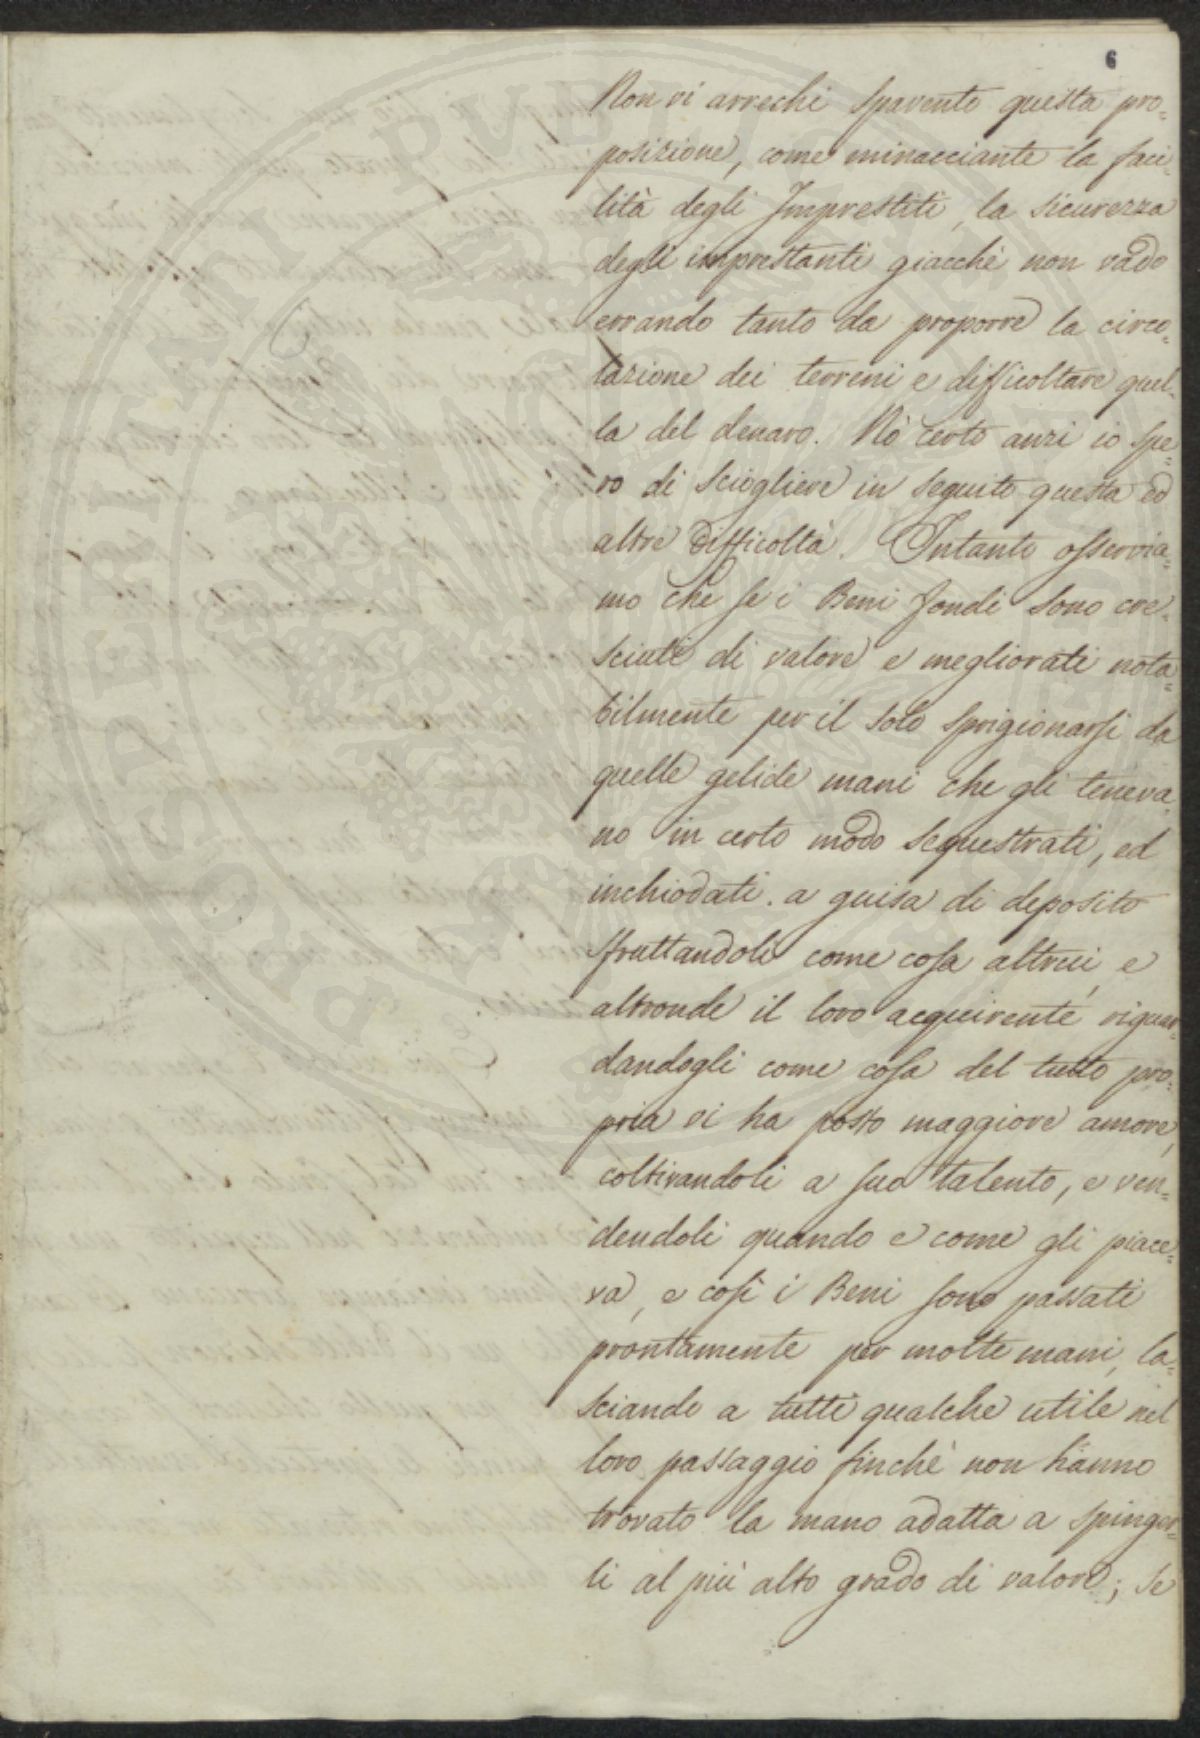 6
Non vi arrechi spavento questa pro=
posizione, come minacciante la faci=
lità degli Imprestiti, la sicurezza
degli imprestanti giacchè non vado
errando tanto da proporre la circo=
lazione dei terreni e difficoltare quel=
la del denaro. Nò certo anzi io spe=
ro di sciogliere in seguito questa ed
altre difficoltà. Intanto osservia=
mo che se i Beni fondi sono cre=
sciuti di valore e megliorati nota=
bilmente per il solo sprigionarsi da
quelle gelide mani che gli teneva=
no in certo modo sequestrati, ed
inchiodati. a guisa di deposito
sfruttandoli come cosa altrui, e
altronde il loro acquirente, riguar=
dandogli come cosa del tutto pro=
pria vi ha posto maggiore amore,
coltivandoli a suo talento, e ven=
dendoli quando e come gli piace=
va, e così i Beni sono passati
prontamente per molte mani, la=
sciando a tutti qualche utile nel
loro passaggio finchè non hanno
trovato la mano adatta a spinger=
li al più alto grado di valore; se
PROSPERITATI PUBLICAE